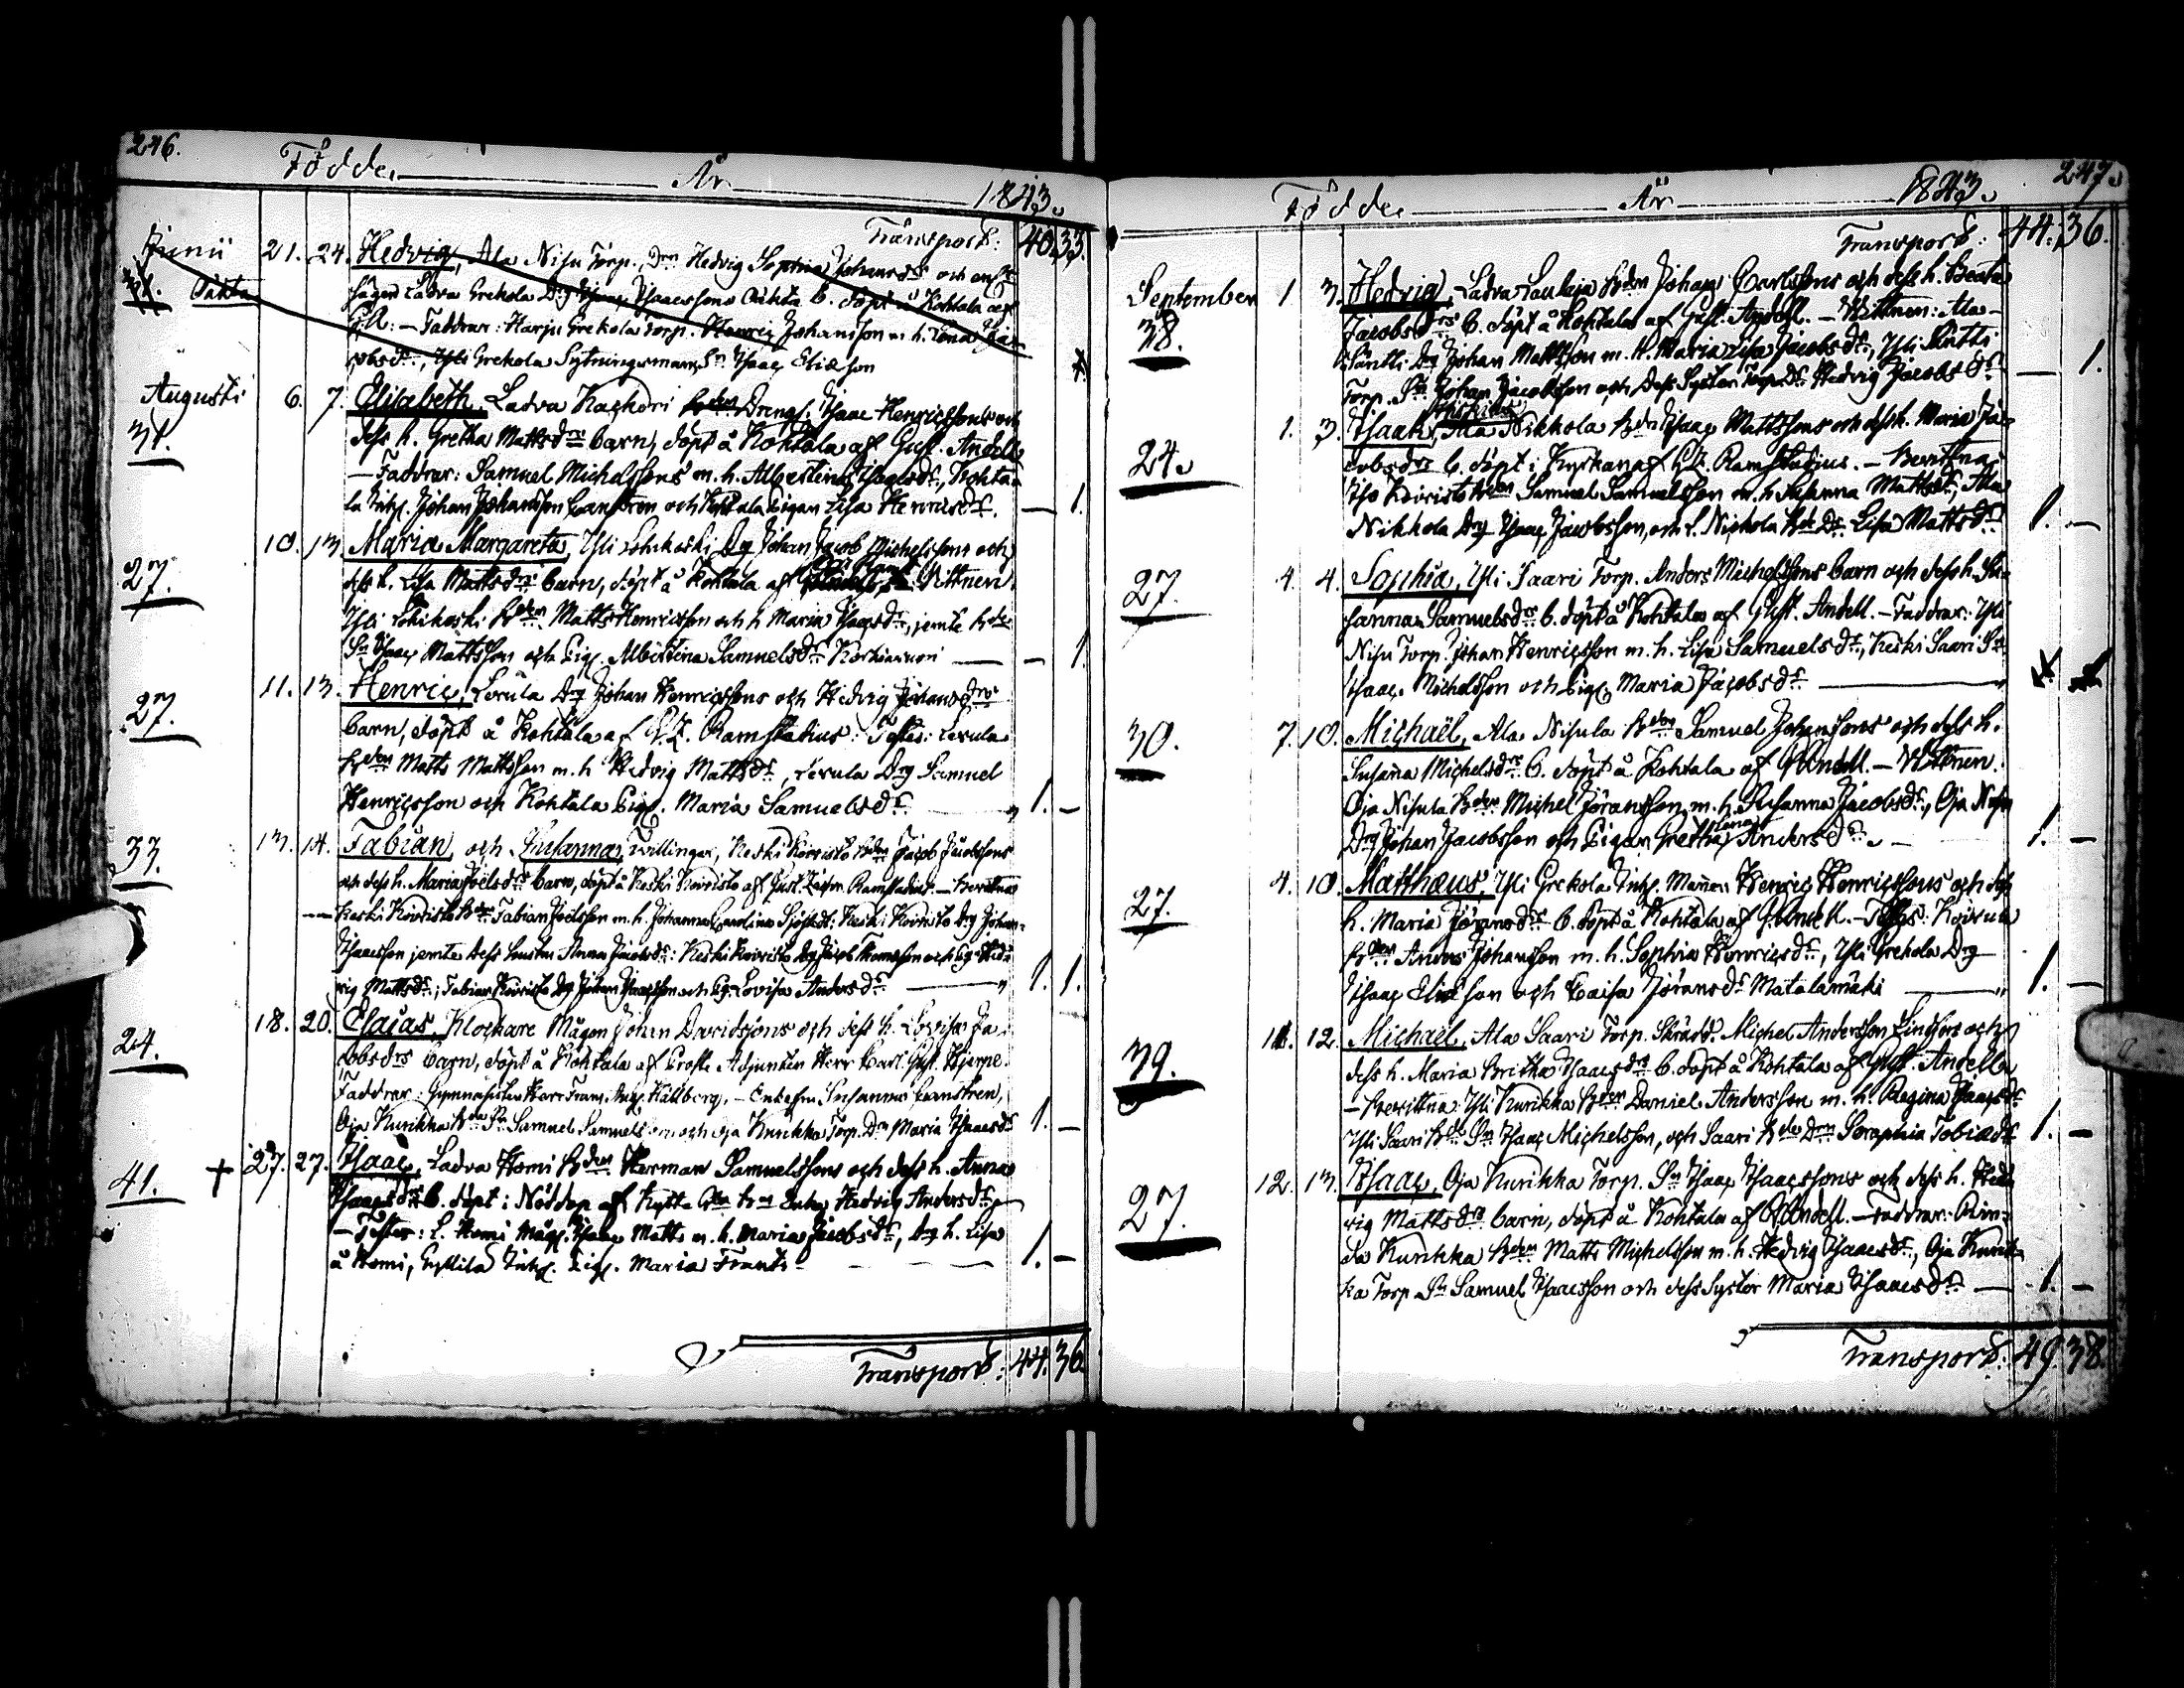 246.
Födde. År 1843.
Transport: 40. 33.
Junii 21. 24. Hedvig, Ala Nisu Torp. Drn Hedvig Sophia Johansdrs och
Ladva Grekola Drg Isaac Isaacssons Oäkta b. döpt å Kohtala af
— Faddrar: Harju Grekola Torp. Henric Johansson m. h. Lena Jac-
obsdr, Yli Grekola Sytningsmans Sn Isaac Eliæson
Augusti 6. 7. Elisabeth, Ladva Kaskori Bden Drengs. Isaac Henricssons och
31. dess h. Gretha Mattsdrs barn, döpt å Kohtala af Gust. Andell
— Faddrar: Samuel Michelssons m. h. Albertina Isaacsdr, Kohta-
la Inhs. Johan Johansson och Kohtala Pigan Lisa Henricsdr. — 1.
10. 13. Maria Margareta, Yli Drg Johan Jacob Michelssons och
27. dess h. Lisa Mattsdrs barn, döpt å Kohtala af Vittnen:
Yli Bden Matts Henricsson och h. Maria Isacsdr, jemte Bdes
Sn Isaac Mattsson och Pig. Albertina Samuelsdr — 1
11. 13. Henric, Lerula Drg Johan Henricssons och Hedvig Johansdrs
27. barn, döpt å Kohtala af G. Z. Ramstadius: Testes: Lerula
Bden Matts Mattsson m. h. Hedvig Mattsdr, Lerula Drg Samuel
Henricsson och Kohtala Pig. Maria Samuelsdr. 1. —
13. 14. Fabian, och Susanna, Tvillingar, Keski Koivisto Bden Jacob Jacobssons
33. och dess h. Maria Joelsdrs barn, döpt å Keski Koivisto af Gust. Zachr. Ramstadius. —
Keski Koivisto Bden Fabian Joelsson m. h. Johanna Carolina Keski Koivisto Drg Johan
Isaacsson jemte dess hustru Anna Jacobsdr: Keski Koivisto Drg Jacob Thomasson och Pig. Hed-
vig Mattsdr; Fabian Koivisto Drg Johan Isaacsson och Pg. Lovisa Andersdr 1. 1.
18. 20. Elaias, Klockare Mågen Johan Davidssons och dess h. Lovisa Ja-
24. cobsdrs barn, döpt å Kohtala af Adjuncten Herr Carl Gust. Hjerpe.
Faddrar: Gymnasisten Herr Frans Aug. Hällberg, — Enkefru Susanna
Oja Kurikka Bde Sn Samuel Samuelsson och Oja Kurikka Torp. Dr Maria Isaacsdr 1. —
+ 27. 27. Isaac, Ladva Homi Bden Herman Samuelssons och dess h. Anna
41. Isaacsdrs b. döpt i Nöddop af Hedvig Andersdr,
— Testes: L. Homi Måg. Isaac Matts m. h. Maria Jacobsdr, h. Lisa
å Homi, Gyllilä Inhs. Pig. Maria Frants 1. —
Transport: 44. 36.
247.
Födde. År 1843.
Transport: 44. 36.
September 1 3. Hedvig, Ladva Laulaja Bden Johan Carlssons och dess h. Beata
38. Jacobsdrs b. döpt å Kohtala af Gust. Andell. — Vittnen: Ala-
Säntti Drg Johan Mattsson m. h. Maria Lisa Jacobsdr, Yli Säntti
Torp. Sn Johan Jacobsson och dess Syster Torp. Dr Hedvig Jacobsdr — 1.
1. 3. Isaak, Ala Nikkola Bden Isaac Mattssons och dess h. Maria Ja-
24. cobsdrs b. döpt i Kyrkan af G. Z. Ramstadius. — Bevittna:
Iso Koivisto Bden Samuel Samuelsson m. h. Susanna Mattsdr, Ala
Nikkola Drg Isaac Jacobsson, och L. Nickola Bde Dr. Lisa Mattsdr 1. —
4. 4. Sophia, Yli Saari Torp. Anders Michelssons barn och dess h. Su-
27. sanna Samuelsdrs b. döpt å Kohtala af Gust. Andell. — Faddrar: Yli
Nisu Torp. Johan Henricsson m. h. Lisa Samuelsdr, Keski Saari Sn
Isaac Michelsson och Pig. Maria Jacobsdr
7. 10. Michaël, Ala Nisula Bden Samuel Johanssons och dess h.
30. Susanna Michelsdrs b. döpt å Kohtala af Andell. — Vittnen:
Oja Nisula Bden Michel Jöransson m. h. Susanna Jacobsdr, Oja Nisu
Drg Johan Jacobsson och Pigan Gretha Lena Andersdr. 1. —
4. 10. Matthæus, Yli Grekola Inhs. Mannen Henric Henricssons och dess
27. h. Maria Jöransdrs b. döpt å Kohtala af G. Andell. — Testes: Koivula
Bden Anders Johansson m. h. Sophia Henricsdr, Yli Grekola Drg
Isaac Eliæson och Caisa Jöransdr Matalamäki 1. —
11. 12. Michaël, Ala Saari Torp. Skrädd. Michel Andersson Lindfors och
39. dess h. Maria Britha Isaacsdrs b. döpt å Kohtala af Gust. Andell
— Bevittna: Yli Kurikka Bden Daniel Andersson m. h. Regina Isaacsdr
Yli Saari Bde Sn Isaac Michelsson, och Saari Bde Drn Seraphia Tobiædr 1. —
12. 13. Isaac, Oja Kurikka Torp. Sn Isaac Isaacssons och dess h. Hed-
27. vig Mattsdrs barn, döpt å Kohtala af G. Andell. — Faddrar: Rin-
da Kurikka Bden Matts Michelsson m. h. Hedvig Isaacsdr, Oja Kurik-
ka Torp. Sn Samuel Isaacsson och dess Syster Maria Isaacsdr — 1. —
Transport: 49. 38.